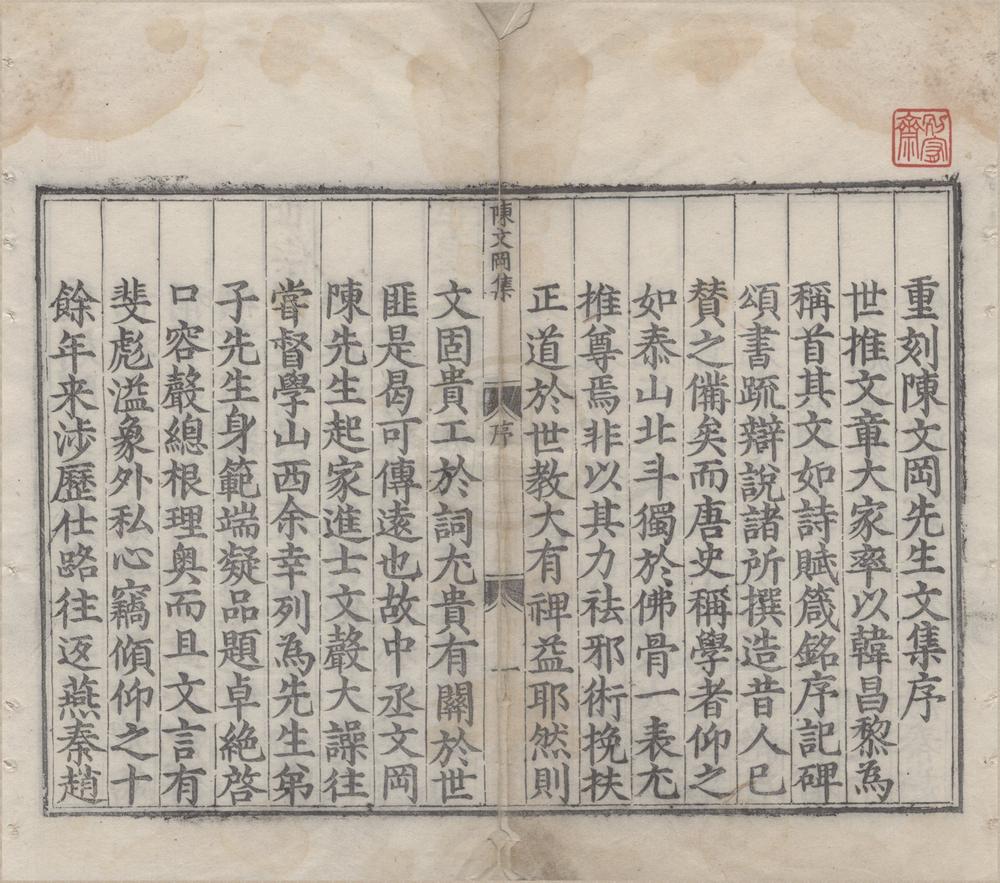 重刻陳文岡先生文集序
世推文章大家率以韓昌黎為
稱首其文如詩賦箴銘序記碑
頌書疏辯說諸所撰造昔人已
賛之備矣而唐史稱學者仰之
如泰山北斗獨於佛骨一表尤
推尊焉非以其力祛邪術挽扶
正道於世教大有裨益耶然則
陳文岡集
序
一
文固貴工於詞尤貴有關於世
匪是曷可傳遠也故中丞文岡
陳先生起家進士文聲大譟往
嘗督學山西余幸列為先生弟
子先生身範端凝品題卓絶啓
口容聲總根理奥而且文言有
斐彪溢象外私心竊傾仰之十
餘年来涉歷仕路往返燕秦趙